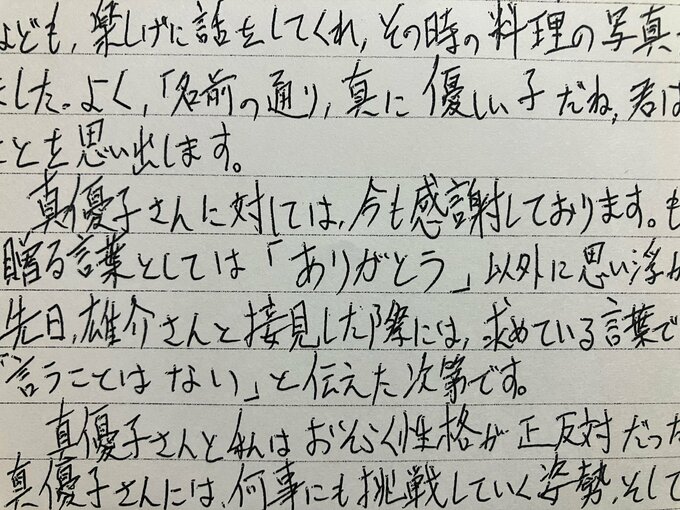 なども、楽しげに話をしてくれ、その時の料理の写真
ました。よく、「名前の通り、真に優しい子だね、君は
ことを思い出します。
真優子さんに対しては、今も感謝しております。も
贈る言葉としては「ありがとう」以外に思い浮か
先日、雄介さんと接見した際には、求めている言葉で
「言うことはない」と伝えた次第です。
真優子さんと私はおそらく性格が正反対だった
真優子さんには、何事にも挑戦していく姿勢、そして